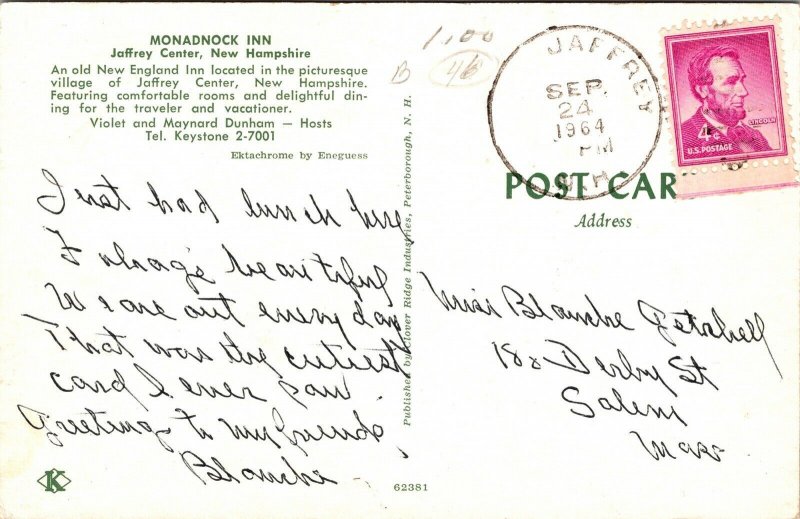 MONADNOCK INN
Jaffrey Center, New Hampshire
An old New England Inn located in the picturesque
village of Jaffrey Center, New Hampshire.
Featuring comfortable rooms and delightful din-
ing for the traveler and vacationer.
Violet and Maynard Dunham — Hosts
Tel. Keystone 2-7001
Ektachrome by Eneguess
1.00
B
46
JAFFREY
SEP.
24
1964
PM
N.H.
LINCOLN
4¢
U.S. POSTAGE
POST CAR
Address
Just had lunch here
Foliage beautiful
We are out every day
That was the cutiest
card I ever saw
Greetings to my friends
Blanche
Published by Clover Ridge Industries, Peterborough, N. H.
Miss Blanche Getchell
188 Derby St
Salem
Mass
K
62381